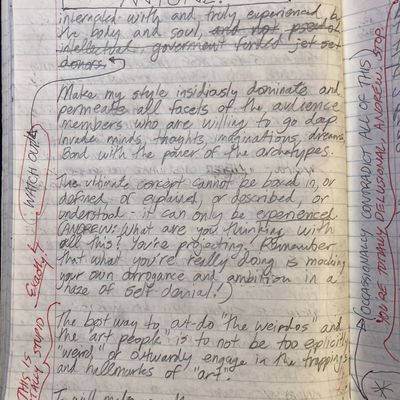 interacted with and truly experienced by
the body and soul, and not pseudo
intellectual, goverment funded jet set
donors.
Make my style insidiously dominate and
permeate all facets of the audience
members who are willing to go deep
invade minds, thoughts, imaginations, dreams
Bond with the power of the archetypes.
The ultimate concept cannot be boxed in, or
defined, or explained, or described, or
understood - it can only be experienced
(ANDREW: What are you thinking with
all this? You're projecting! Remember
that what you're really doing is mocking
your own arrogance and ambition in a
haze of self denial!)
The best way to out-do "the weirdos" and
the art people is to not be too explicitly
"weird" or outwardly engage in the trappings
and hallmarks of "art".
WATCH OUT
Exactly!
THIS IS
TOTALLY STUPID
(OCCASIONALLY CONTRADICT ALL OF THIS)
YOU'RE TOTALLY DELUSIONAL ANDREW STOP